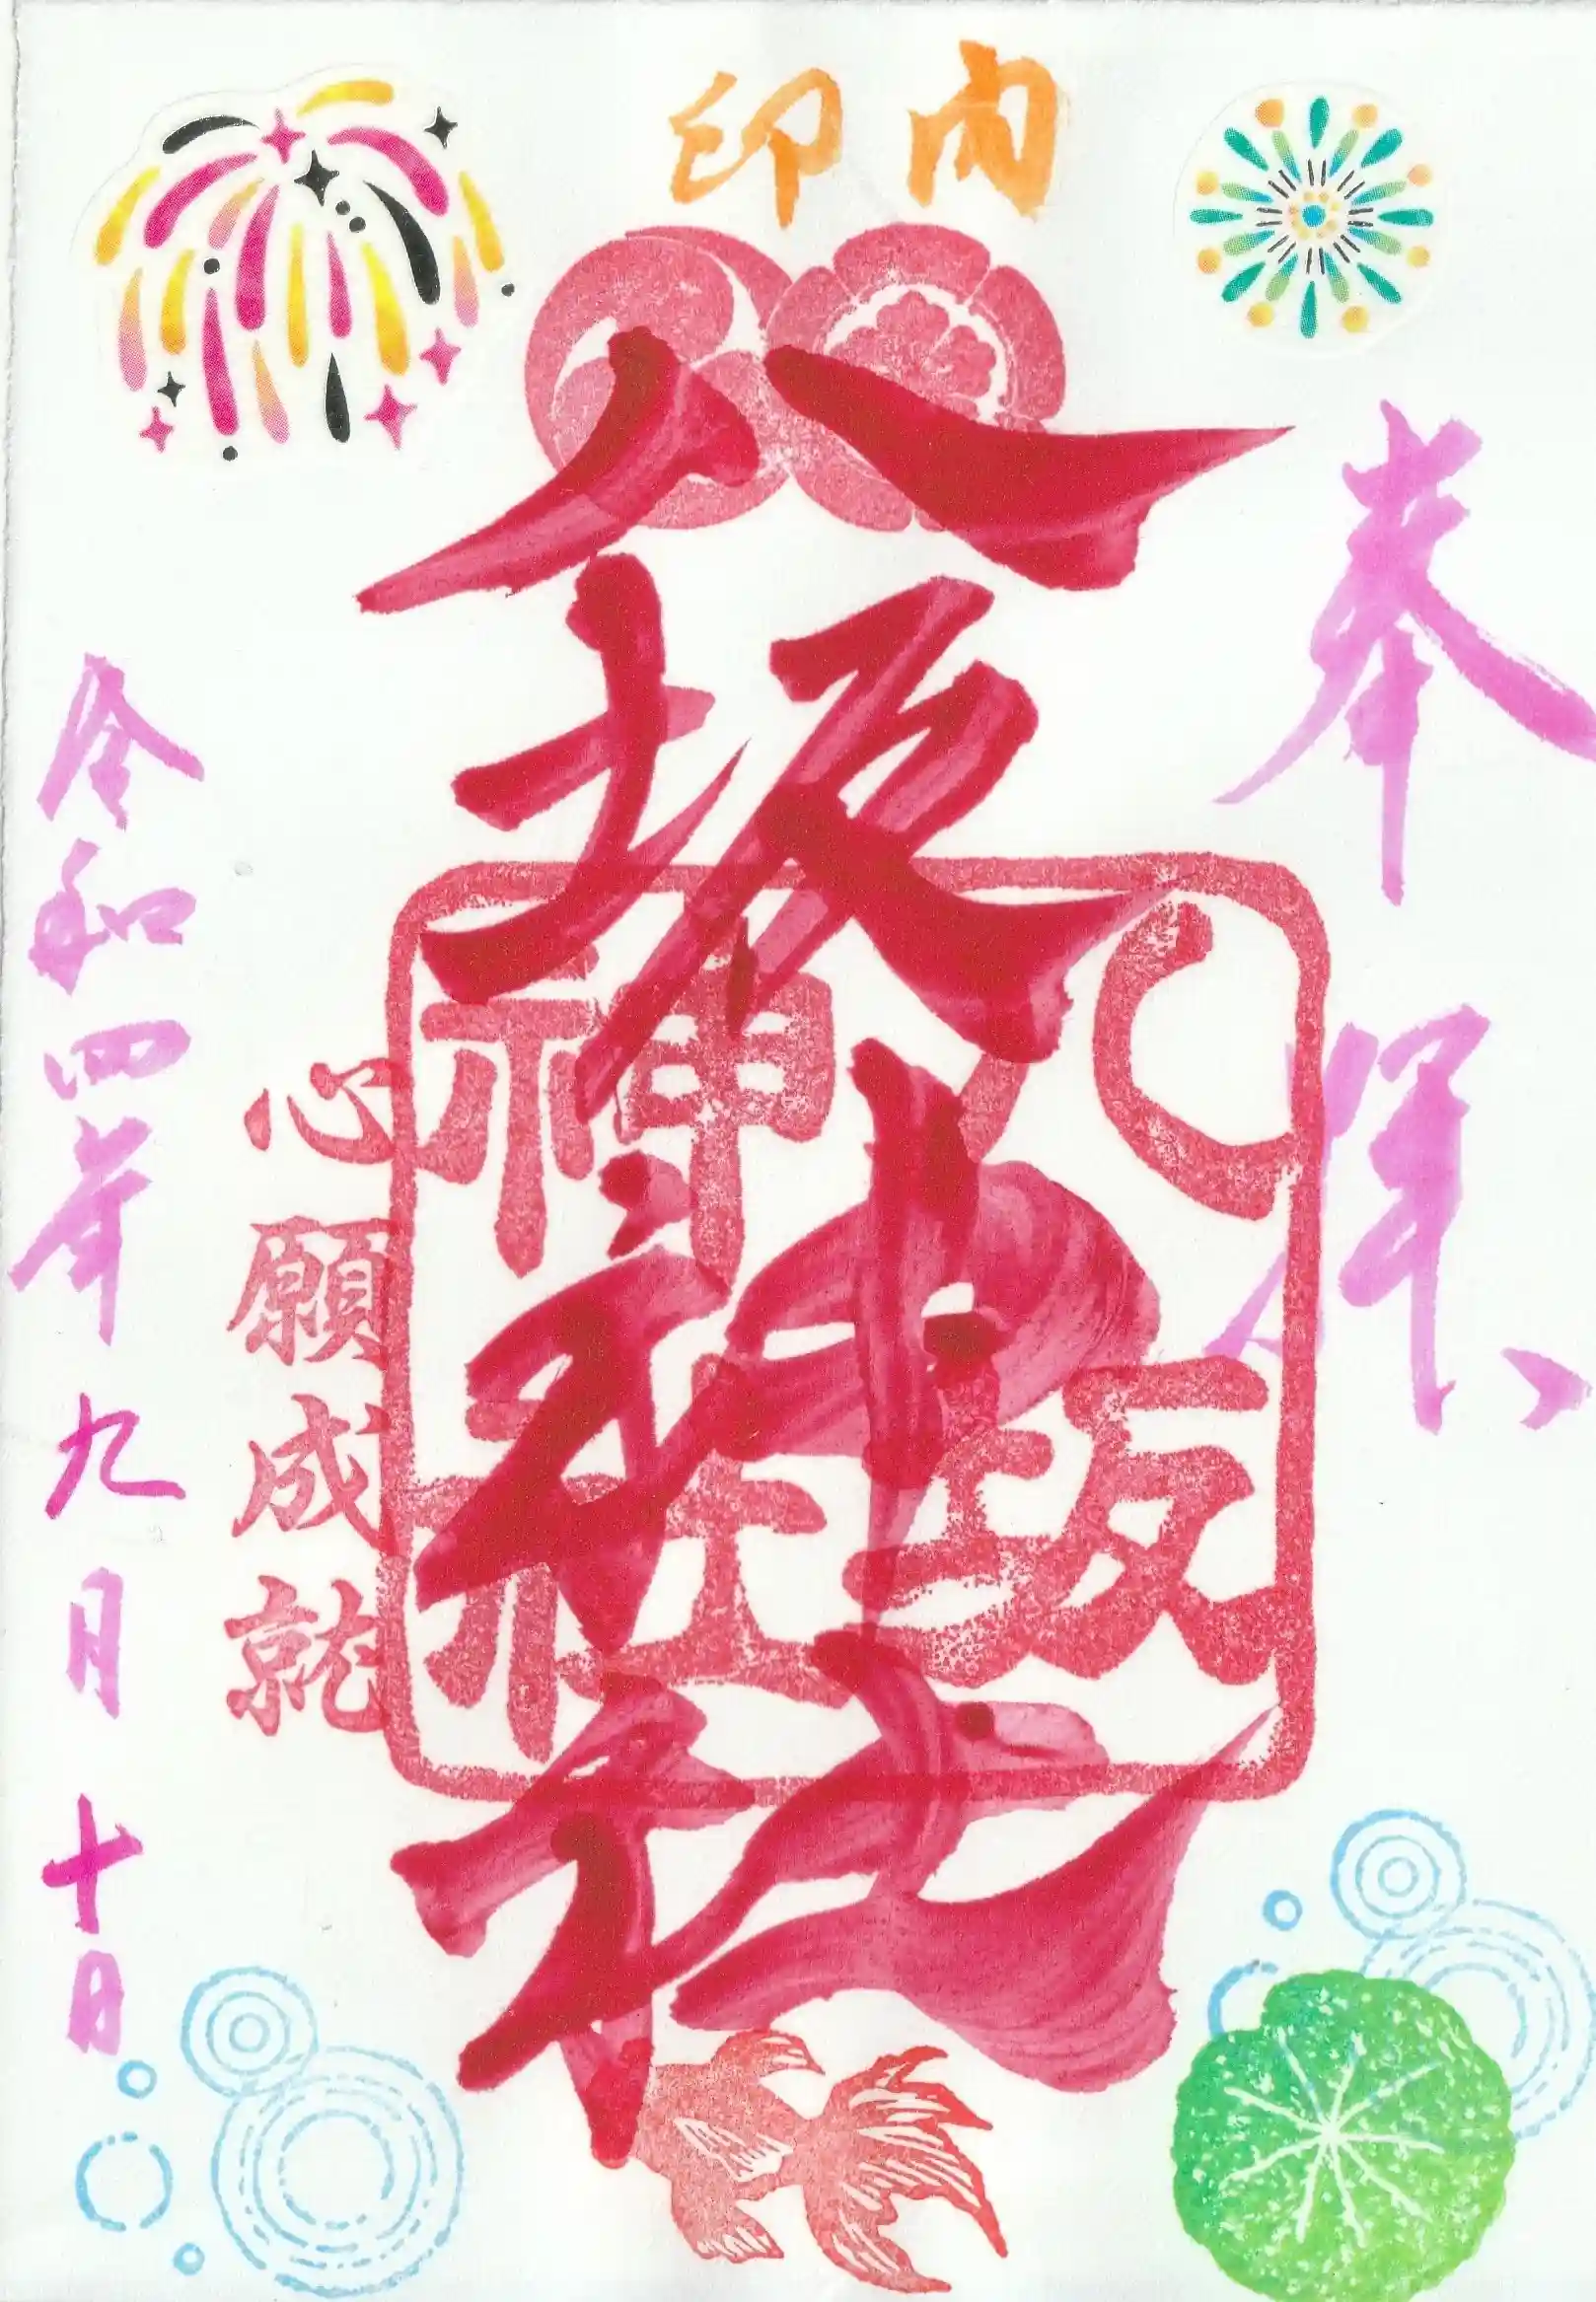 印内
奉拝
八坂神社
八坂
神社
心願成就
令和四年九月十日